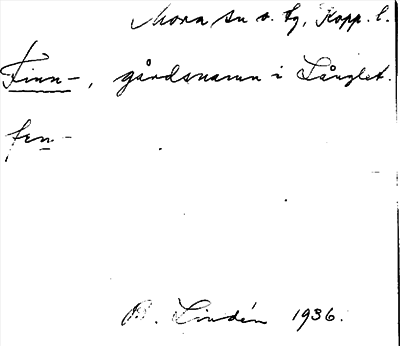 Mora sn o. tg, Kopp. l.
Finn-, gårdsnamn i Långlet.
fen-
B. Lindén 1936.